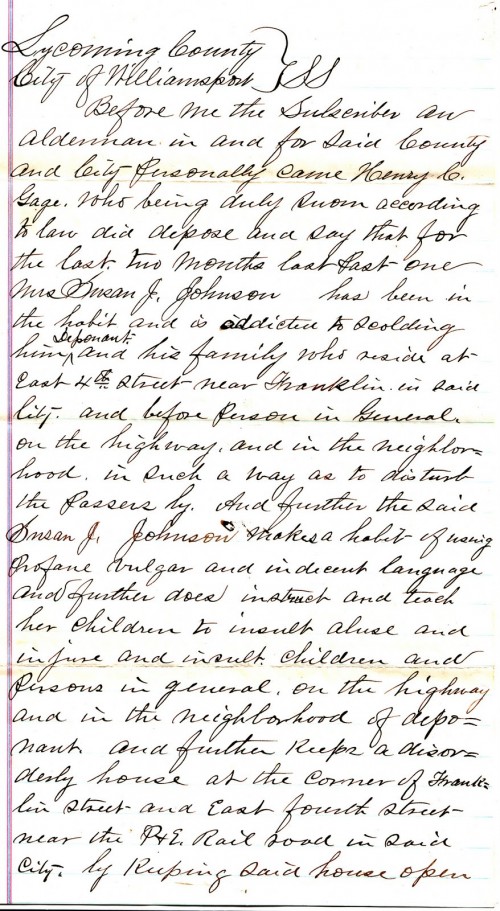 Lycoming County
City of Williamsport } SS
Before me the Subscriber an
alderman in and for said County
and City Personally came Henry C.
Gage. who being duly sworn according
to law did depose and say that for
the last. two months last past one
Mrs Susan J. Johnson has been in
the habit and is addicted to scolding
him Deponant and his family who reside at
East 4th street near Franklin in said
City. and before Person in General.
on the highway, and in the neighbor=
hood. in such a way as to disturb
the Passers by. And further the said
Susan J. Johnson makes a habit of using
Profane vulgar and indecent language
and further does instruct and teach
her children to insult abuse and
injure and insult. children and
Persons in general. on the highway
and in the neighborhood of depo=
nant. and further keeps a disor=
derly house at the corner of Frank=
lin street and East fourth street
near the P&E. Rail road in said
City. by keeping said house open